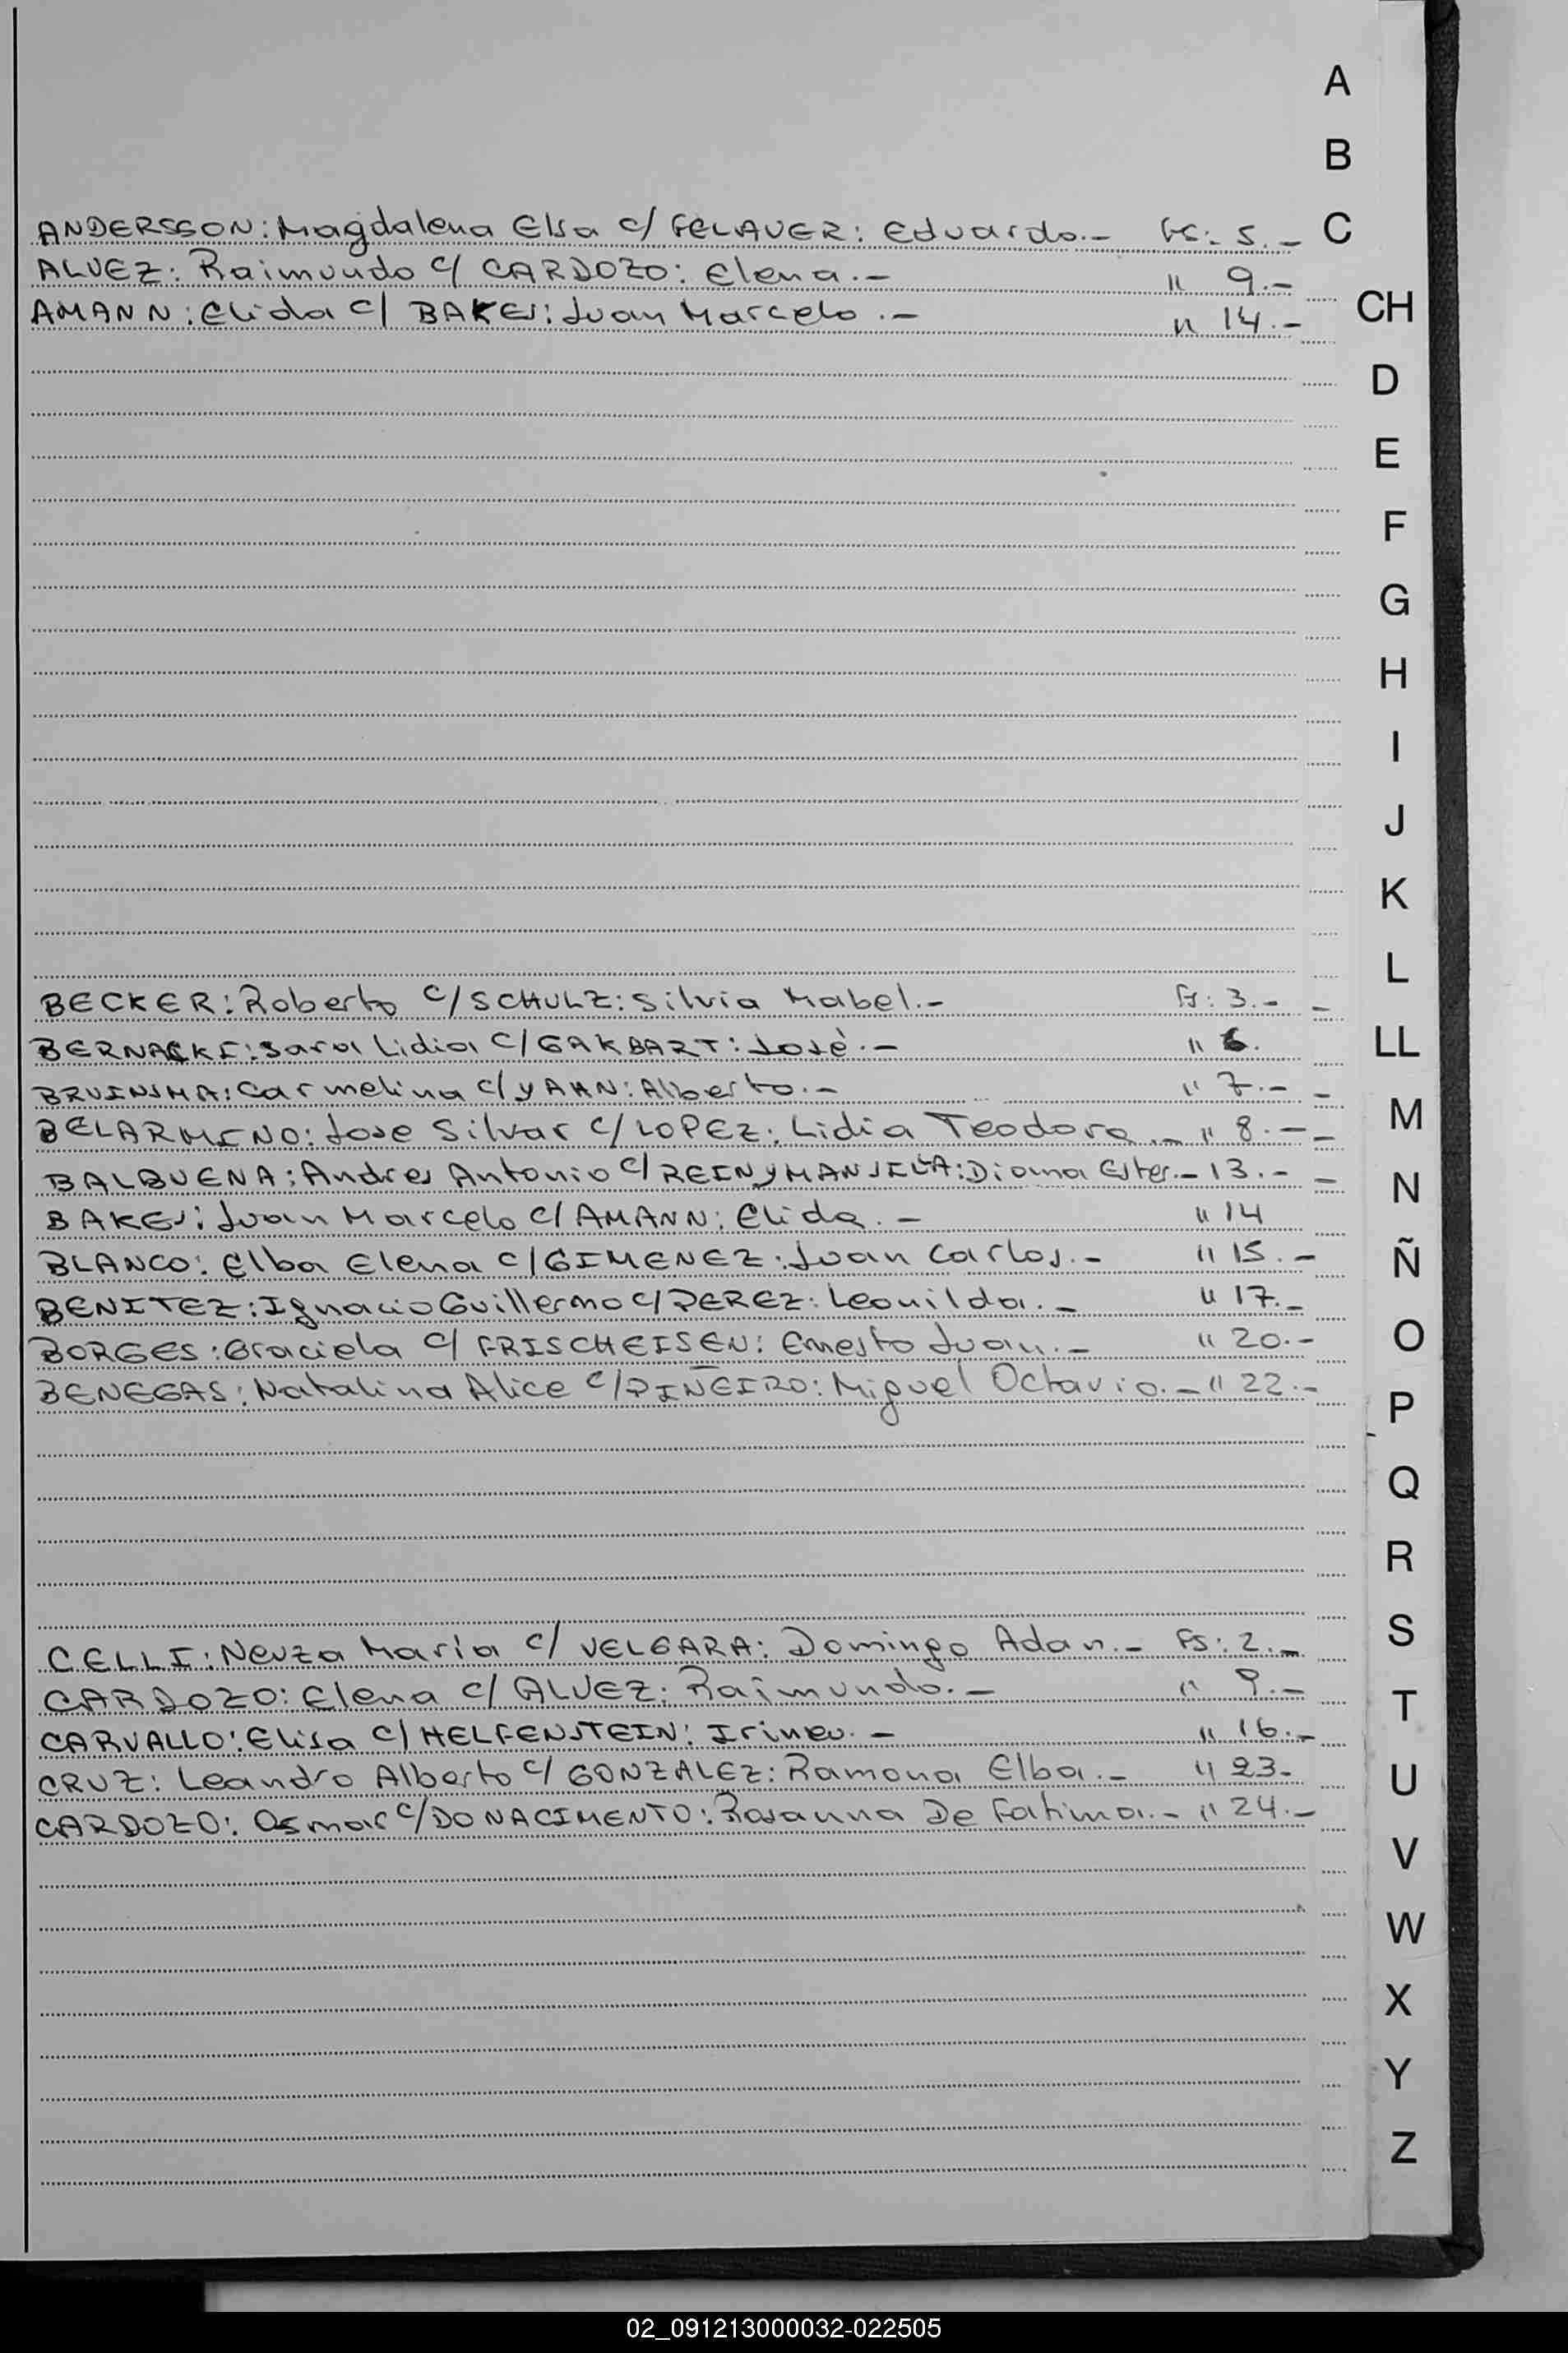 A
B
ANDERSSON: Magdalena Elsa c/ FELAUER: Eduardo.- Fs: 5.-
C
ALVEZ: Raimundo c/ CARDOZO: Elena.- " 9.-
AMANN: Elida c/ BAKES: Juan Marcelo.- " 14.-
CH
D
E
F
G
H
I
J
K
L
BECKER: Roberto c/ SCHULZ: Silvia Mabel.- Fs: 3.-
BERNACKI: Sara Lidia c/ GAKBART: José.- " 6.
LL
BRUINSMA: Carmelina c/ YAHN: Alberto.- " 7.-
BELARMINO: Jose Silvar c/ LOPEZ: Lidia Teodora.- " 8.-
M
BALBUENA: Andres Antonio c/ REINYMANSILLA: Diana Ester.- 13.-
N
BAKES: Juan Marcelo c/ AMANN: Elida.- " 14
BLANCO: Elba Elena c/ GIMENEZ: Juan Carlos.- " 15.-
Ñ
BENITEZ: Ignacio Guillermo c/ PEREZ: Leonilda.- " 17.-
BORGES: Graciela c/ FRISCHEISEN: Ernesto Juan.- " 20.-
O
BENEGAS: Natalina Alice c/ PIÑEIRO: Miguel Octavio.- " 22.-
P
Q
R
S
CELLI: Neuza Maria c/ VELGARA: Domingo Adan.- Fs: 2.-
CARDOZO: Elena c/ ALVEZ: Raimundo.- " 9.-
T
CARVALLO: Elisa c/ HELFENSTEIN: Irineu.- " 16.-
CRUZ: Leandro Alberto c/ GONZALEZ: Ramona Elba.- " 23.-
U
CARDOZO: Osmar c/ DO NACIMENTO: Rosanna De Fatima.- " 24.-
V
W
X
Y
Z
02_091213000032-022505